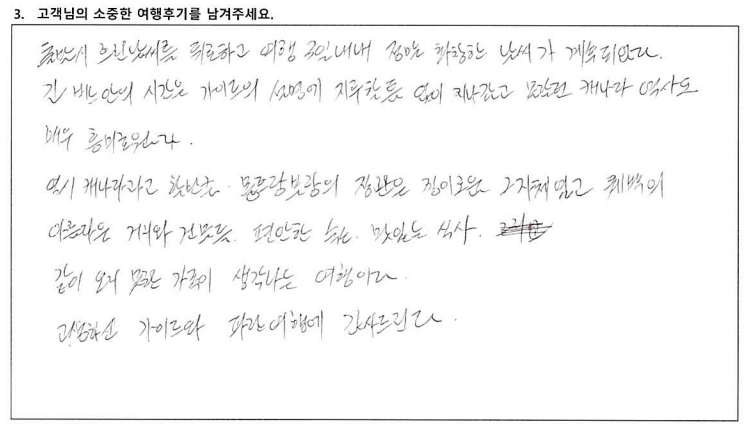 3. 고객님의 소중한 여행후기를 남겨주세요.
흐린날씨를 뒤로하고 여행 3일내내 정말 화창한 날씨가 계속되었다.
긴 버스안의 시간은 가이드의 설명에 지루할틈 없이 지나갔고 몰랐던 캐나다 역사도
매우 흥미로웠다.
역시 캐나다라고 할만큼. 몽트랑블랑의 장관은 경이로운 그자체였고 퀘백의
아름다운 거리와 건물들. 편안한 숙소. 맛있는 식사.
같이 오지 못한 가족이 생각나는 여행이다.
고생하신 가이드와 파란여행에 감사드린다.